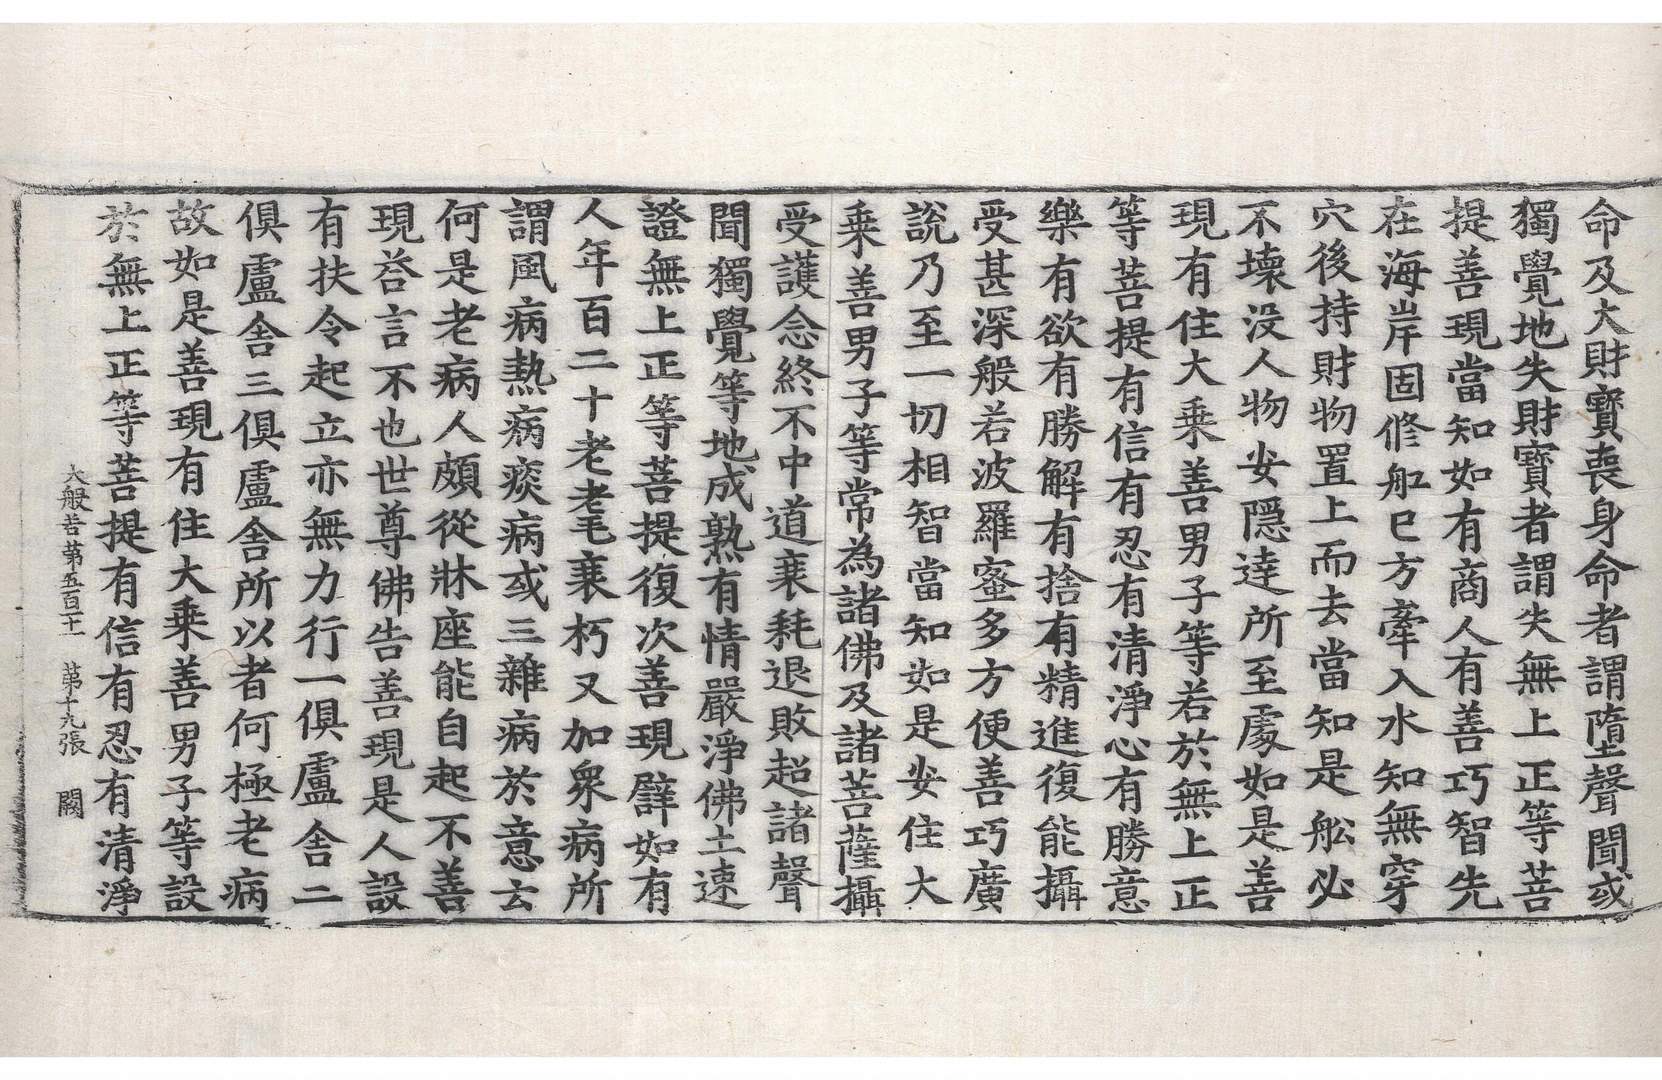 命及大財寶喪身命者謂墮聲聞或
獨覺地失財寶者謂失無上正等菩
提善現當知如有商人有善巧智先
在海岸固修舡已方牽入水知無穿
穴後持財物置上而去當知是舩必
不壞没人物安隱達所至處如是善
現有住大乘善男子等若於無上正
等菩提有信有忍有清淨心有勝意
樂有欲有勝解有捨有精進復能攝
受甚深般若波羅蜜多方便善巧廣
說乃至一切相智當知如是安住大
乘善男子等常為諸佛及諸菩薩攝
受護念終不中道衰耗退敗超諸聲
聞獨覺等地成熟有情嚴淨佛土速
證無上正等菩提復次善現譬如有
人年百二十老耄衰朽又加衆病所
謂風病熱病痰病或三雜病於意云
何是老病人頗從牀座能自起不善
現荅言不也世尊佛告善現是人設
有扶令起立亦無力行一俱盧舍二
俱盧舍三俱盧舍所以者何極老病
故如是善現有住大乘善男子等設
於無上正等菩提有信有忍有清淨
大般若第五百十一 第十九張 闕